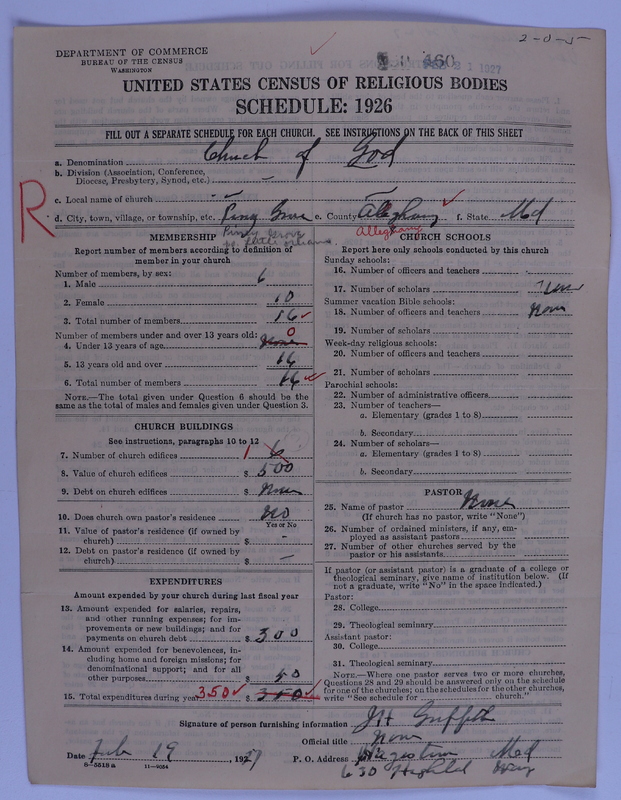 2-0-5-
DEPARTMENT OF COMMERCE
BUREAU OF THE CENSUS
WASHINGTON
460
1 1927
UNITED STATES CENSUS OF RELIGIOUS BODIES
SCHEDULE: 1926
FILL OUT A SEPARATE SCHEDULE FOR EACH CHURCH. SEE INSTRUCTIONS ON THE BACK OF THIS SHEET
R
a. Denomination Church of God
b. Division (Association, Conference,
Diocese, Presbytery, Synod, etc.) –
c. Local name of church
d. City, town, village, or township, etc. Piney Grove e. County Alleghany f. State Md
Piney Grove
Allegany
MEMBERSHIP
Report number of members according to definition of
member in your church
Number of members, by sex:
1. Male 6
2. Female 10
3. Total number of members 16
Number of members under and over 13 years old: 0
4. Under 13 years of age None
5. 13 years old and over 16
6. Total number of members 16
NOTE.—The total given under Question 6 should be the
same as the total of males and females given under Question 3.
CHURCH BUILDINGS
See instructions, paragraphs 10 to 12
7. Number of church edifices 1 6
8. Value of church edifices $ 500
9. Debt on church edifices $ None
10. Does church own pastor's residence No
Yes or No
11. Value of pastor's residence (if owned by
church) $ -
12. Debt on pastor's residence (if owned by
church) $ –
EXPENDITURES
Amount expended by your church during last fiscal year
13. Amount expended for salaries, repairs,
and other running expenses; for im-
provements or new buildings; and for
payments on church debt $ 300
14. Amount expended for benevolences, in-
cluding home and foreign missions; for
denominational support; and for all
other purposes $ 50
15. Total expenditures during year 350 $ 350
CHURCH SCHOOLS
Report here only schools conducted by this church
Sunday schools:
16. Number of officers and teachers
17. Number of scholars None
Summer vacation Bible schools:
18. Number of officers and teachers None
19. Number of scholars
Week-day religious schools:
20. Number of officers and teachers
21. Number of scholars
Parochial schools:
22. Number of administrative officers
23. Number of teachers—
a. Elementary (grades 1 to 8)
b. Secondary
24. Number of scholars—
a. Elementary (grades 1 to 8)
b. Secondary
PASTOR
25. Name of pastor None
(If church has no pastor, write "None")
26. Number of ordained ministers, if any, em-
ployed as assistant pastors
27. Number of other churches served by the
pastor or his assistants
If pastor (or assistant pastor) is a graduate of a college or
theological seminary, give name of institution below. (If
not a graduate, write "No" in the space indicated.)
Pastor:
28. College
29. Theological seminary
Assistant pastor:
30. College
31. Theological seminary
NOTE.—Where one pastor serves two or more churches,
Questions 28 and 29 should be answered only on the schedule
for one of the churches; on the schedules for the other churches,
write "See schedule for church."
Signature of person furnishing information J H Griffith
Official title None
Date Feb 19 1927 P. O. Address Hagerstown Md
630 Highland Way
8-5518a 11-9054